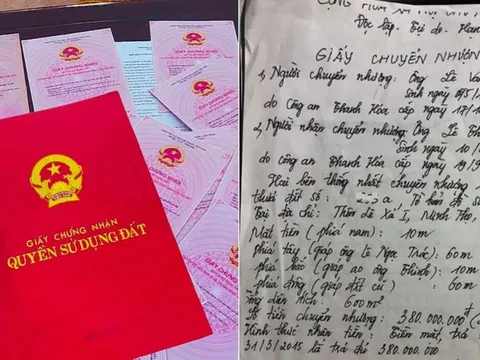 GIẤY CHỨNG NHẬN
QUYỀN SỬ DỤNG ĐẤT
GIẤY CHỨNG NHẬN
GIẤY CHỨNG NHẬN
Độc lập. Tự do.
GIẤY CHUYỂN NHƯỢNG
1, Người chuyển nhượng: Ông Lê Vă
Sinh ngày
do Công an Thanh Hóa cấp ngày 17/1
2, Người nhận chuyển nhượng: Ông Lê Th
Sinh ngày 10/
do công an Thanh Hóa cấp ngày 19/9
Hai bên thống nhất chuyển nhượng
thửa đất số: Tờ bản đồ số
Tại địa chỉ: Thôn Lê Xá I, Minh Thọ,
Mặt tiền (phía nam): 10m
phía tây (giáp ông Lê Ngọc Trác): 60m
phía bắc (giáp ao ông Thinh): 10m
phía đông (giáp đất cũ): 60m
Tổng diện tích: 600m²
Số tiền chuyển nhượng: 380.000.000đ
Hình thức nhận tiền: Tiền mặt, trả
31/3/2015 là trả đủ 380.000.000